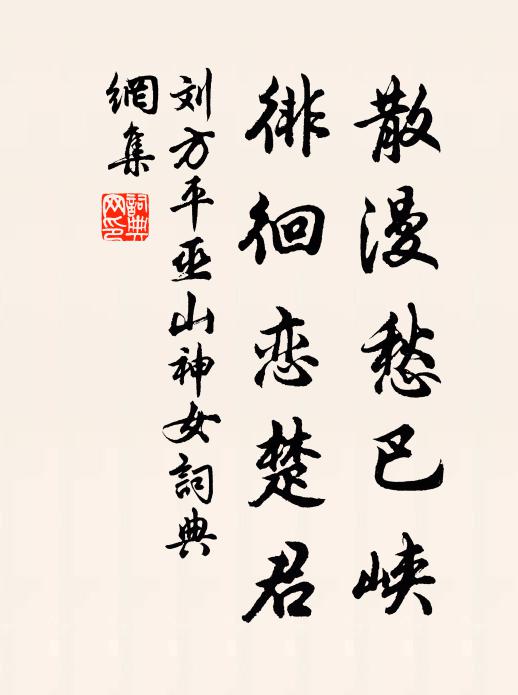 散漫愁巴峡
徘徊恋楚君
刘方平巫山神女詞典
網集
詞典
网印